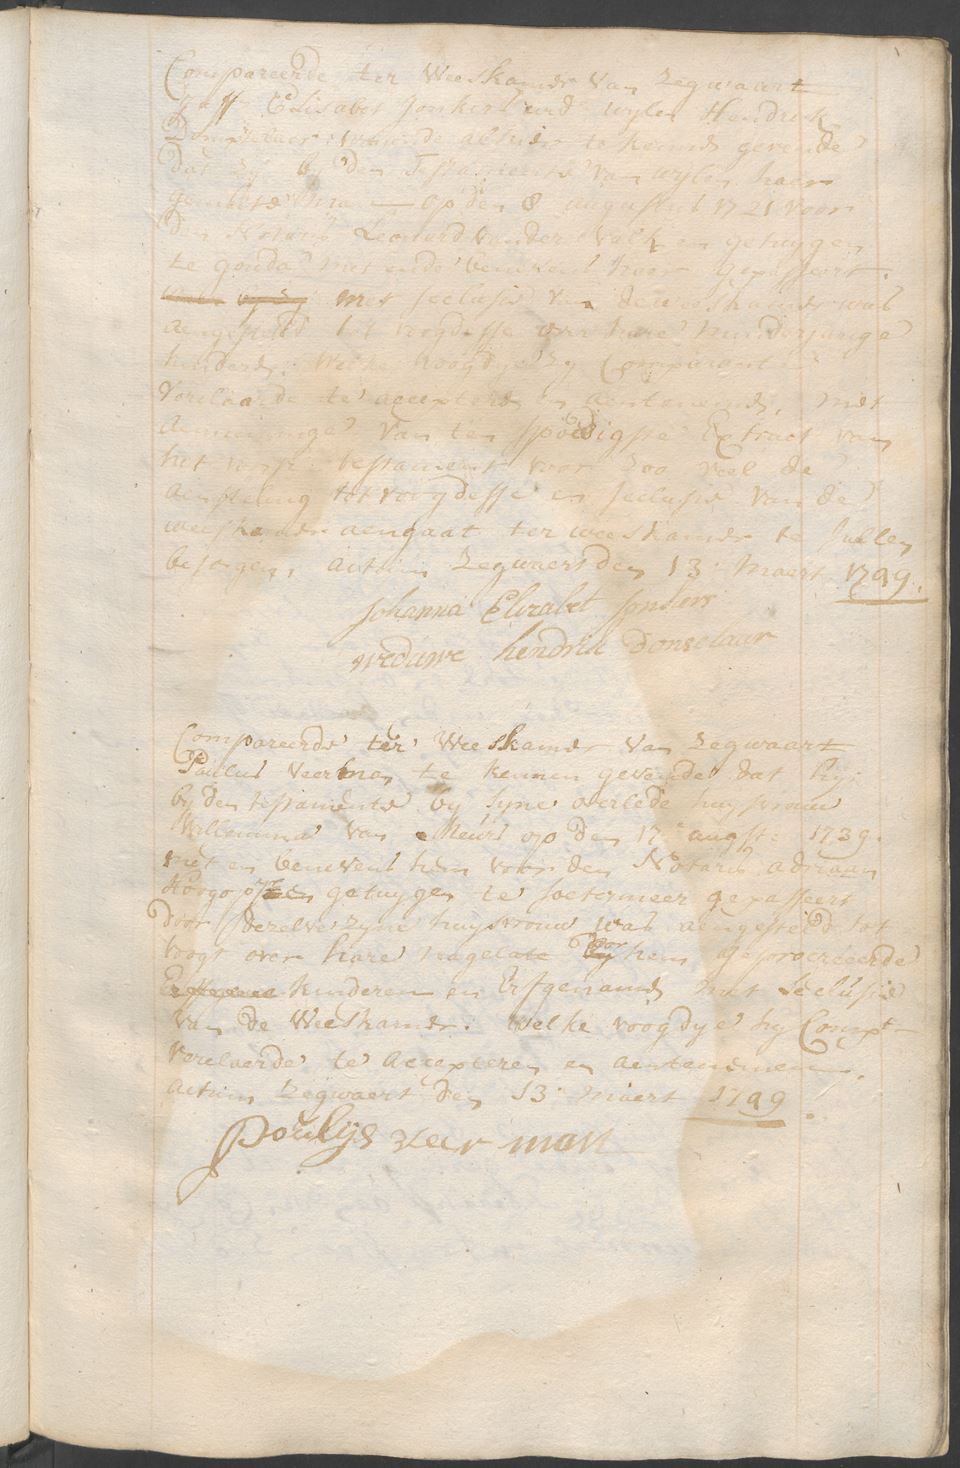 Compareerde ter Weeskamer van Zegwaart
Elisabet Jonkers wed wylen Hendrick
Donselaar wonende alhier te kennen gevende
dat zy by den Testamente van wylen haer
gemelte man op den 8 augustus 1721 voor
den Notaris Leonard vander Valk en getuygen
te gouda met ende benevens haer gepasseert
met seclusie van de weeskamer was
aengestelt tot voogdesse over hare minderjarige
kinderen. Welke voogdye zy Comparant
verclaarde te accepteren en aentenemen, met
aenneminge van ten spoedigste Extract van
het voorsz testament voor zoo veel de
aenstelling tot voogdesse en seclusie van de
weeskamer aengaat ter weeskamer te sullen
besorgen, actum Zegwaert den 13 Maert 1749.
Johanna Elizabet Jonkers
weduwe hendrik Donselaar
Compareerde ter Weeskamer van Zegwaart
Paulus Veerman te kennen gevende dat hy
by den testamente by syne overlede huysvrouw
Willemina van Meurs op den 17 augste 1739.
met en benevens hem voor den Notaris adriaan
en getuygen te soetermeer gepasseert
door deselve zyne huysvrouw was aengesteld tot
voogt over hare nagelate door hem geprocreeerde
kinderen en Erfgenamen met seclusie
van de Weeskamer. welke voogdye hy Compt
verclaerde te accepteren en aentenemen.
actum Zegwaert den 13 maert 1749.
poulijs veer man